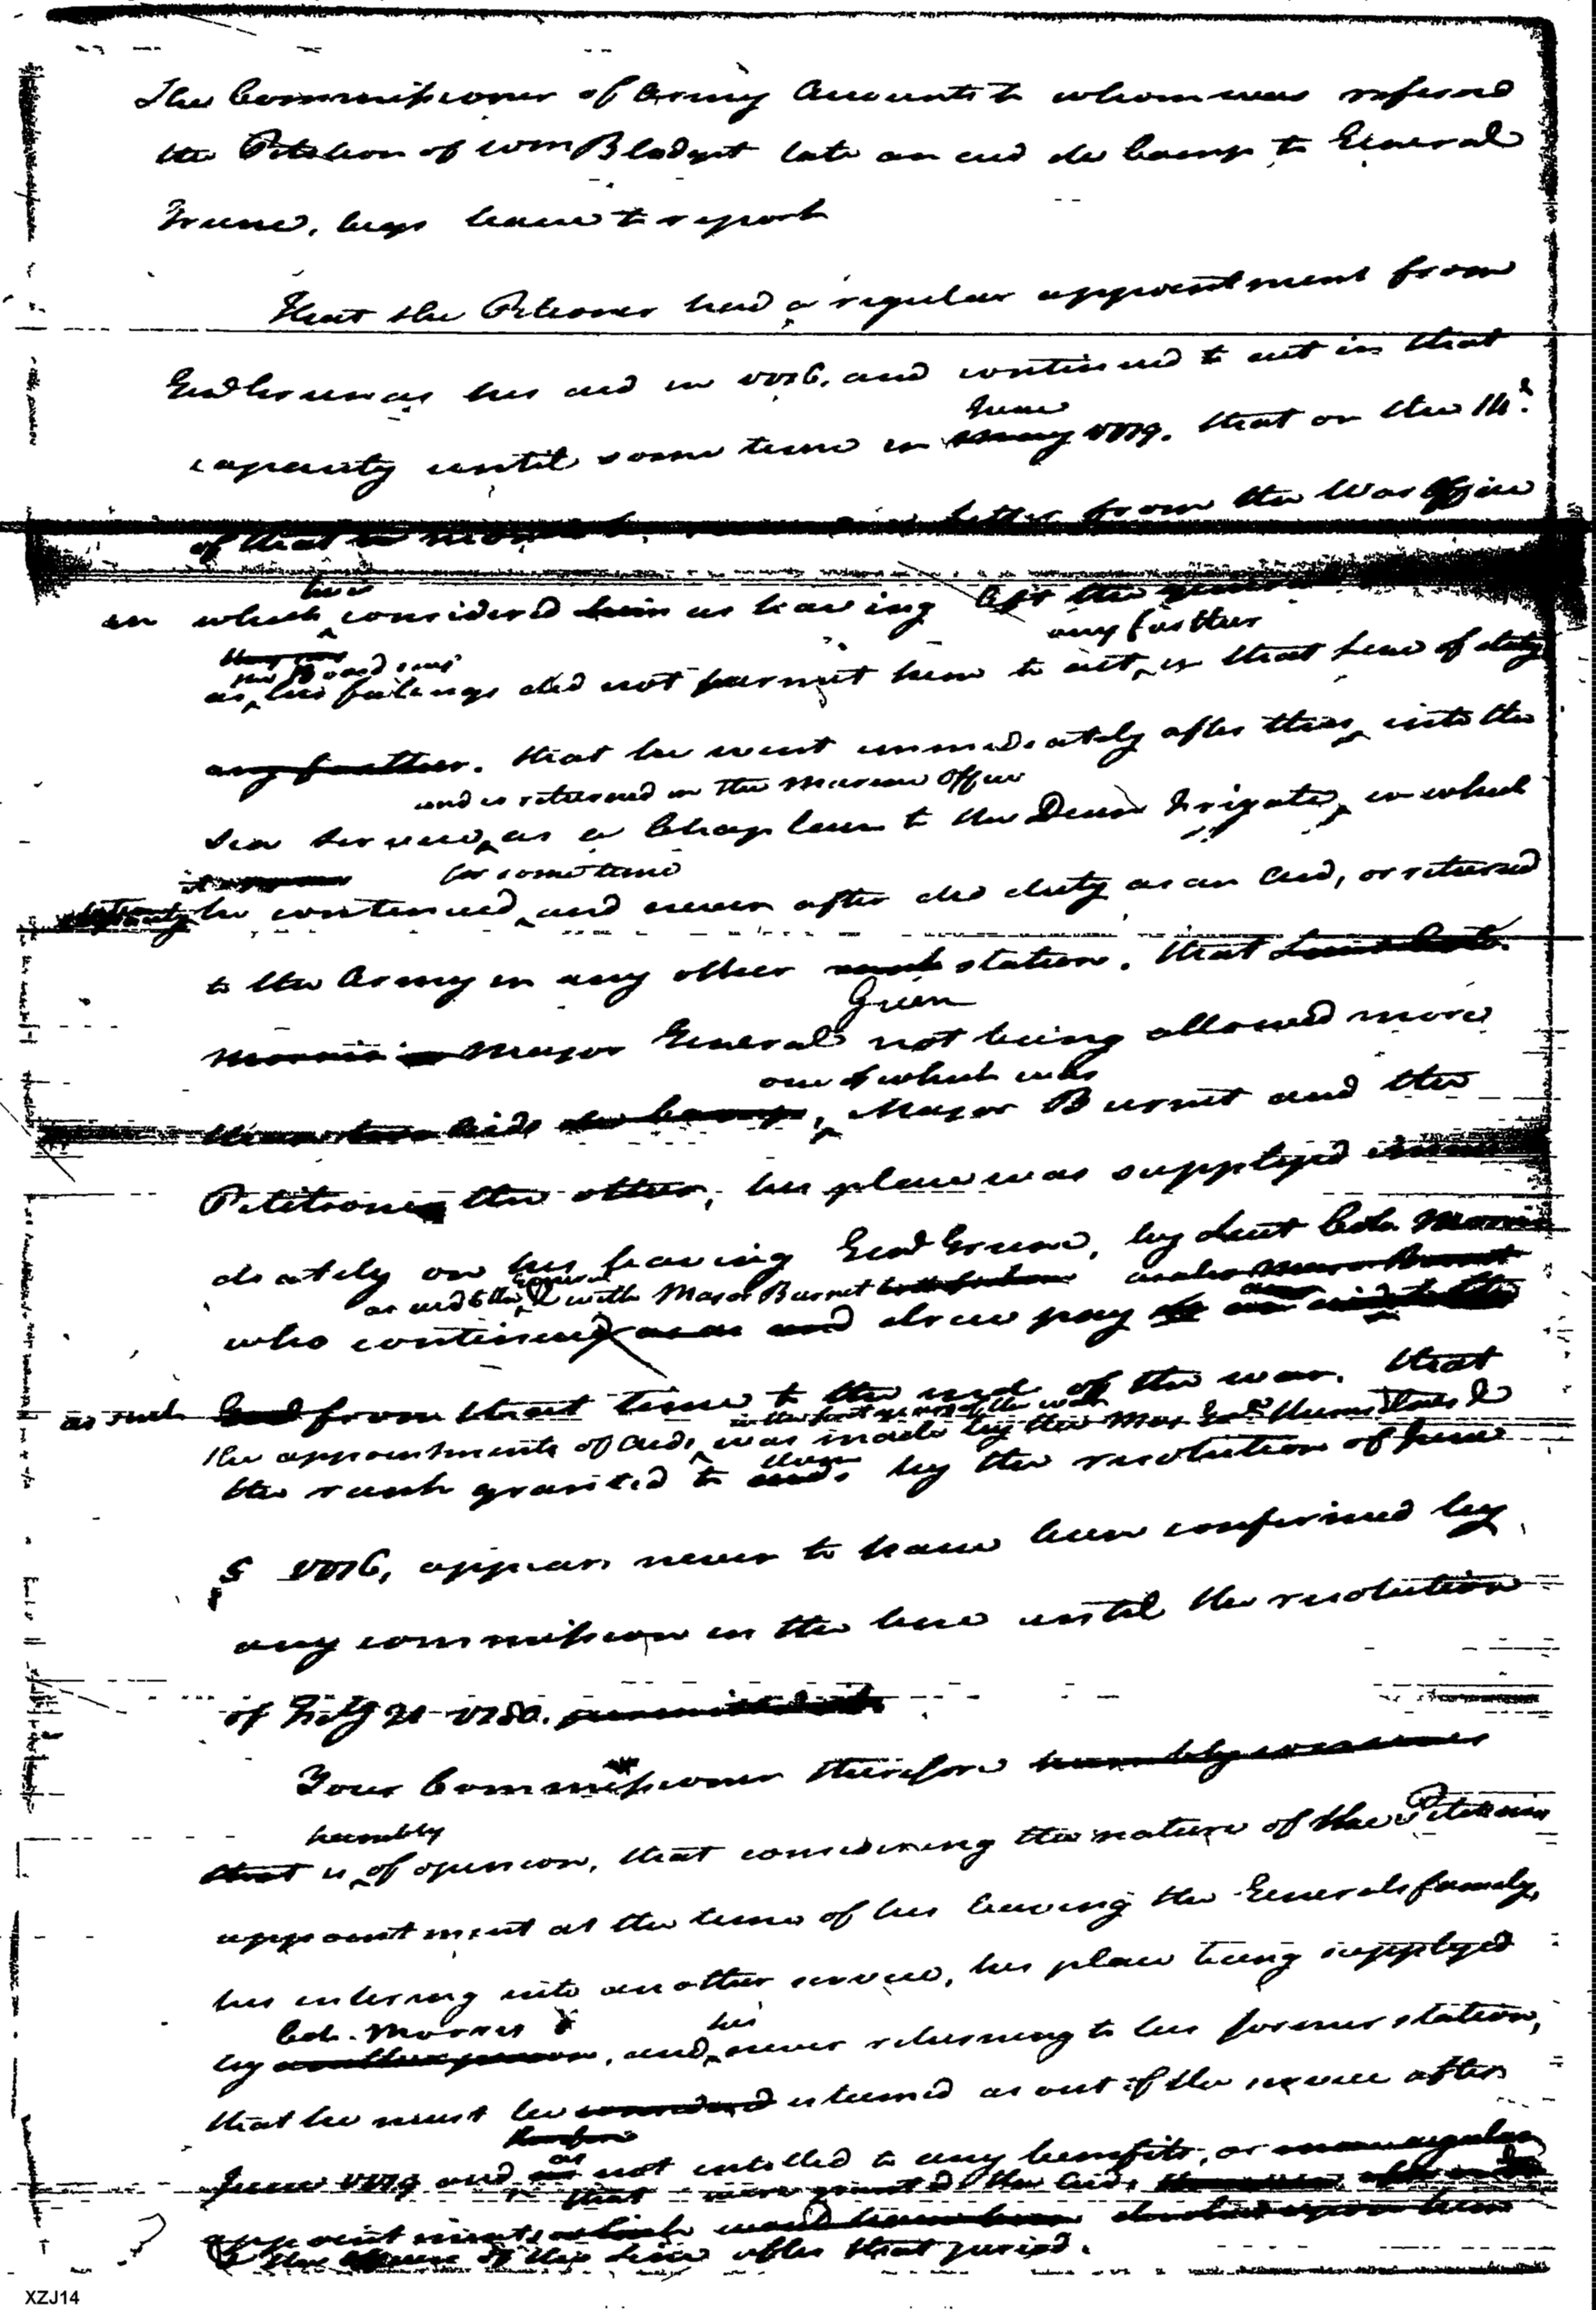 The Commissioner of Army Accounts to whom was referred
the Petition of Wm Blodget late an aid de Camp to General
Greene, begs leave to report
That the Petioner had a regular appointment from
Genl Greene as his aid in 1776, and continued to act in that
June
capacity until some time in May 1779. that on the 14th
of that letter from the War Office
in which considered him as having left the
any farther
the Board says
as his feelings did not permit him to act in that line of duty
any farther. that he went immediately after this, into the
and is returned in the Marine Office
Sea service, as a Chaplain to the Dean Frigate, in which
for some time
he continued, and never after did duty as an Aid, or returned
to the Army in any other rank station. that Lieut Col.
Green
Morris Major General not being allowed more
one of which was
than two Aids de Camp, Major Burnet and the
Petitioner the other, his place was supplyed imme
diately on his leaving Genl Greene, by Lieut Col. Morris
as aid to the General with Major Burnet
who continued and drew pay
as such from that time to the end of the war. that
in the first years of the war
the appointments of Aids, was made by the Maj Genls themselves &
them
the rank granted to aids by the resolution of June
5 1776, appears never to have been confirmed by
any commission in the line until the resolution
of July 21 1780.
Your Commissioner therefore humbly conceives
humbly
that is of opinion, that considering the nature of the Petitioners
appointment at the time of his leaving the Generals family,
his entering into another service, his place being supplyed
Col. Morris & his
by another person, and never returning to his former station,
that he must be considered esteemed as out of the service after
therefore
as
June 1779 and not entitled to any benefits, or more regular
that were granted the Aids
appointments which would have been devolved upon him
of the line after that period.
XZJ14